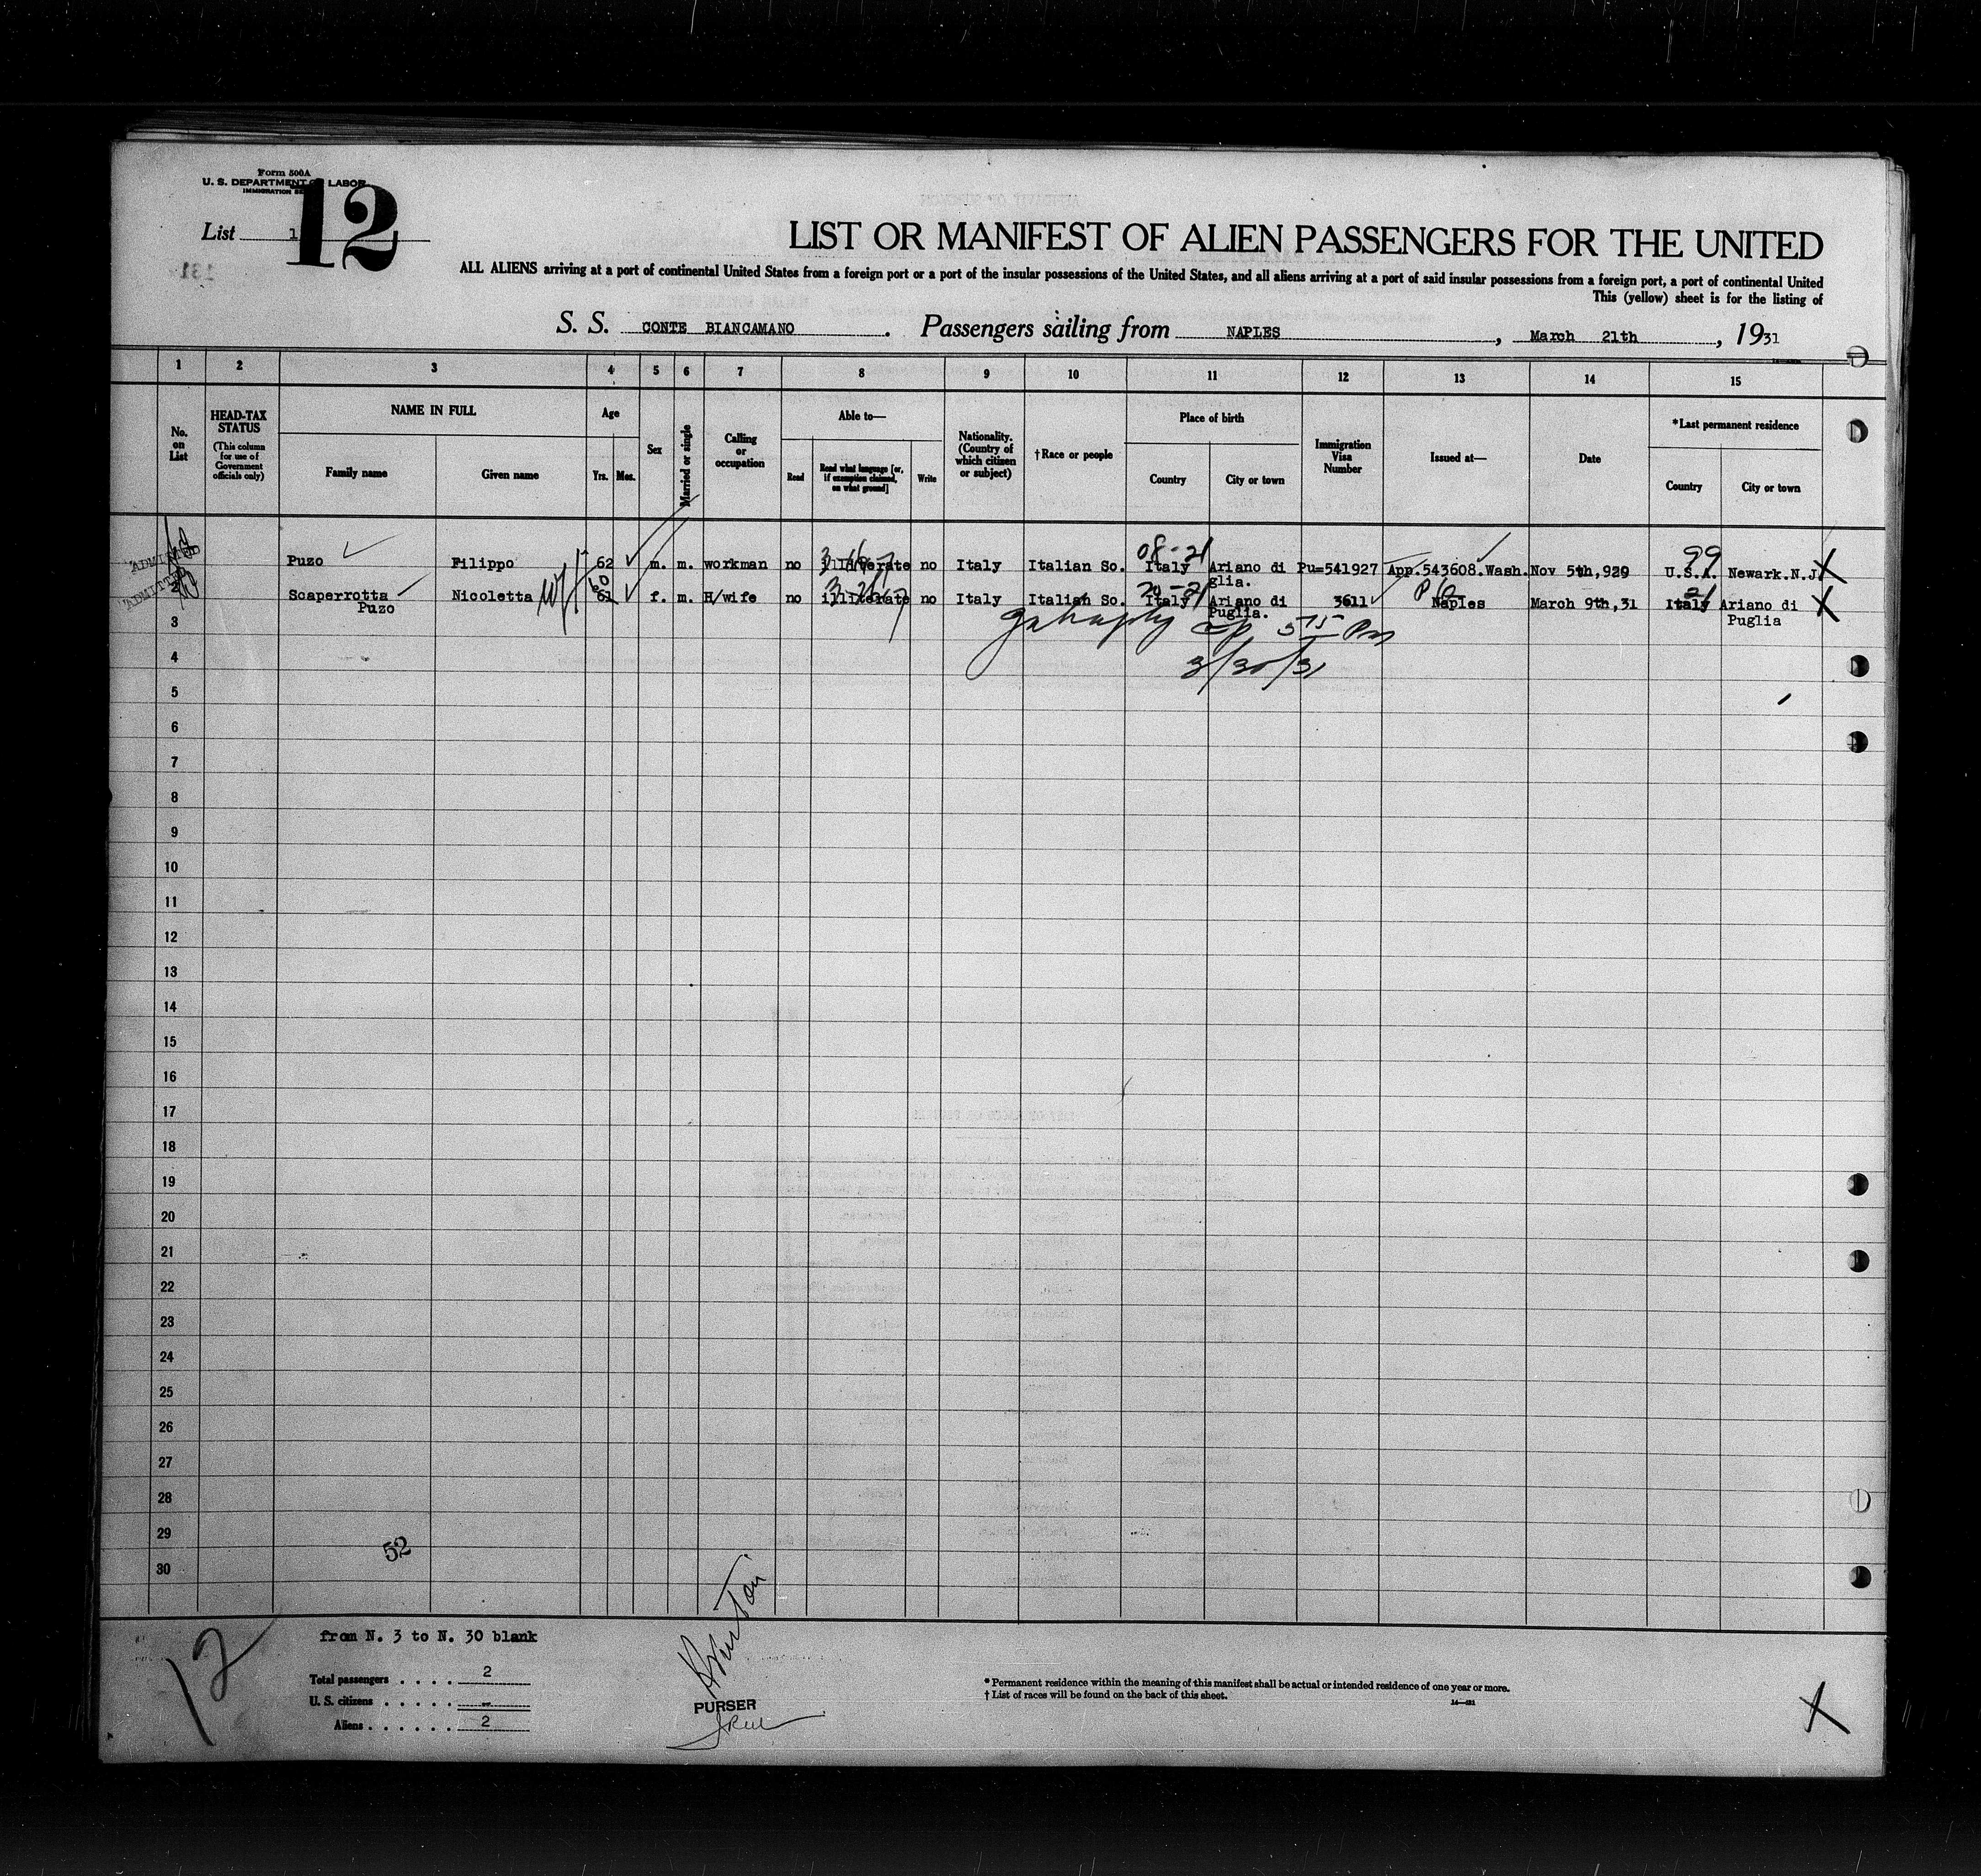 Form 500A
U. S. DEPARTMENT OF LABOR
IMMIGRATION
12
List 1
LIST OR MANIFEST OF ALIEN PASSENGERS FOR THE UNITED
ALL ALIENS arriving at a port of continental United States from a foreign port or a port of the insular possessions of the United States, and all aliens arriving at a port of said insular possessions from a foreign port, a port of continental United
This (yellow) sheet is for the listing of
S. S. CONTE BIANCAMANO. Passengers sailing from NAPLES, March 21th, 1931
1 2 3 4 5 6 7 8 9 10 11 12 13 14 15
No. on List
HEAD-TAX STATUS (This column for use of Government officials only)
NAME IN FULL
Family name Given name
Age
Yrs. Mos.
Sex
Married or single
Calling or occupation
Able to—
Read Read what language [or, if exemption claimed, on what ground] Write
Nationality. (Country of which citizen or subject)
†Race or people
Place of birth
Country City or town
Immigration Visa Number
Issued at—
Date
*Last permanent residence
Country City or town
ADMITTED Puzo Filippo 62 m. m. workman no illiterate no Italy Italian So. 08-21 Italy Ariano di Pu=541927 App.543608.Wash. Nov 5th,929 99 U.S.A. Newark.N.J.
glia.
ADMITTED 2 Scaperrotta Nicoletta 60 61 f. m. H/wife no illiterate no Italy Italian So. 20-21 Italy Ariano di 3611 Naples March 9th,31 21 Italy Ariano di
Puzo Puglia. Puglia
3
575 Pm
4
3/30/31
5
6
7
8
9
10
11
12
13
14
15
16
17
18
19
20
21
22
23
24
25
26
27
28
29
52
30
from N. 3 to N. 30 blank
12
Total passengers . . . . 2
U. S. citizens . . . . . -
Aliens . . . . . . 2
PURSER
* Permanent residence within the meaning of this manifest shall be actual or intended residence of one year or more.
† List of races will be found on the back of this sheet.
X